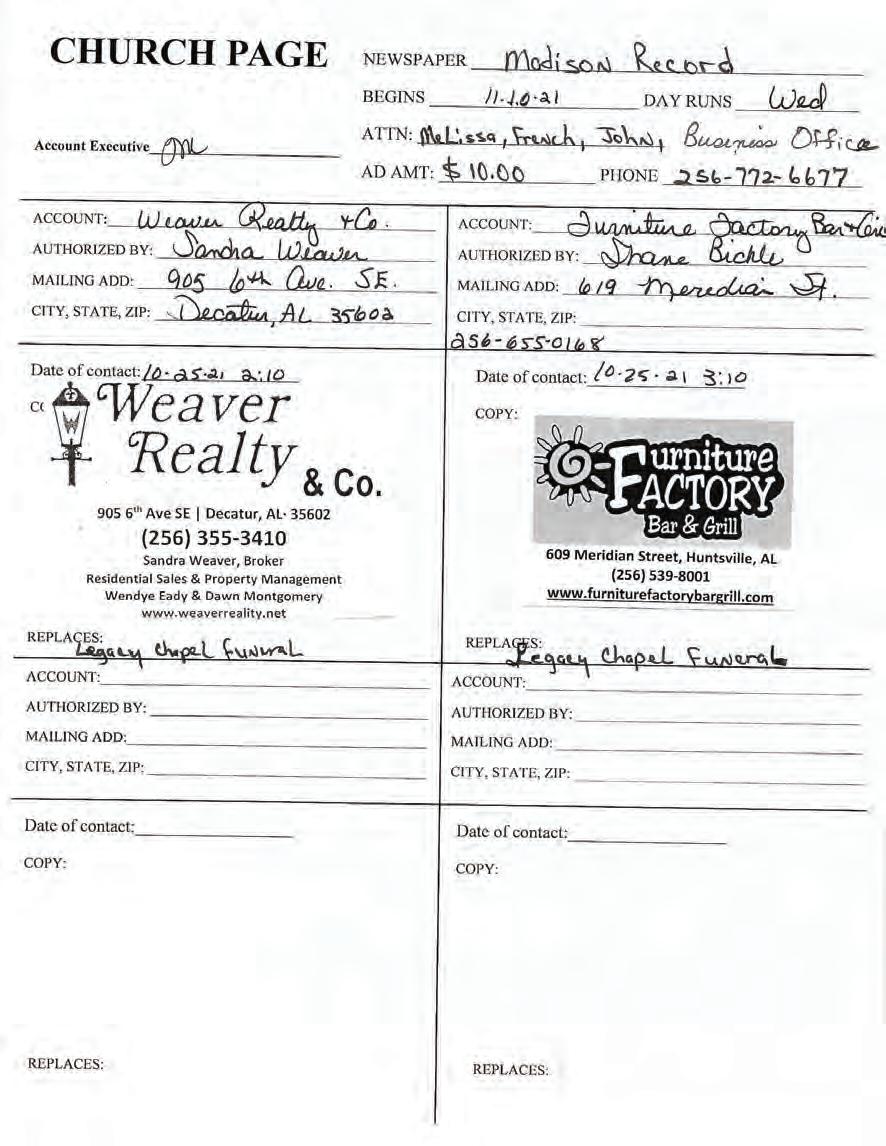 CHURCH PAGE
NEWSPAPER Madison Record
BEGINS 11-10-21 DAY RUNS Wed
Account Executive
ATTN: Melissa, French, John, Business Office
AD AMT: $10.00 PHONE 256-772-6677
ACCOUNT: Weaver Realty & Co.
AUTHORIZED BY: Sandra Weaver
MAILING ADD: 905 6th Ave. SE.
CITY, STATE, ZIP: Decatur, AL 35602
Date of contact: 10-25-21 2:10
CO
W
Weaver
Realty
& Co.
905 6th Ave SE | Decatur, AL· 35602
(256) 355-3410
Sandra Weaver, Broker
Residential Sales & Property Management
Wendye Eady & Dawn Montgomery
www.weaverreality.net
REPLACES:
Legacy Chapel Funeral
ACCOUNT: Furniture Factory Bar & Gril
AUTHORIZED BY: Shane Bickle
MAILING ADD: 619 Meredian St.
CITY, STATE, ZIP:
256-655-0168
Date of contact: 10-25-21 3:10
COPY:
Furniture
FACTORY
Bar & Grill
609 Meridian Street, Huntsville, AL
(256) 539-8001
www.furniturefactorybargrill.com
REPLACES:
Legacy Chapel Funeral
ACCOUNT:
AUTHORIZED BY:
MAILING ADD:
CITY, STATE, ZIP:
Date of contact:
COPY:
REPLACES:
ACCOUNT:
AUTHORIZED BY:
MAILING ADD:
CITY, STATE, ZIP:
Date of contact:
COPY:
REPLACES: